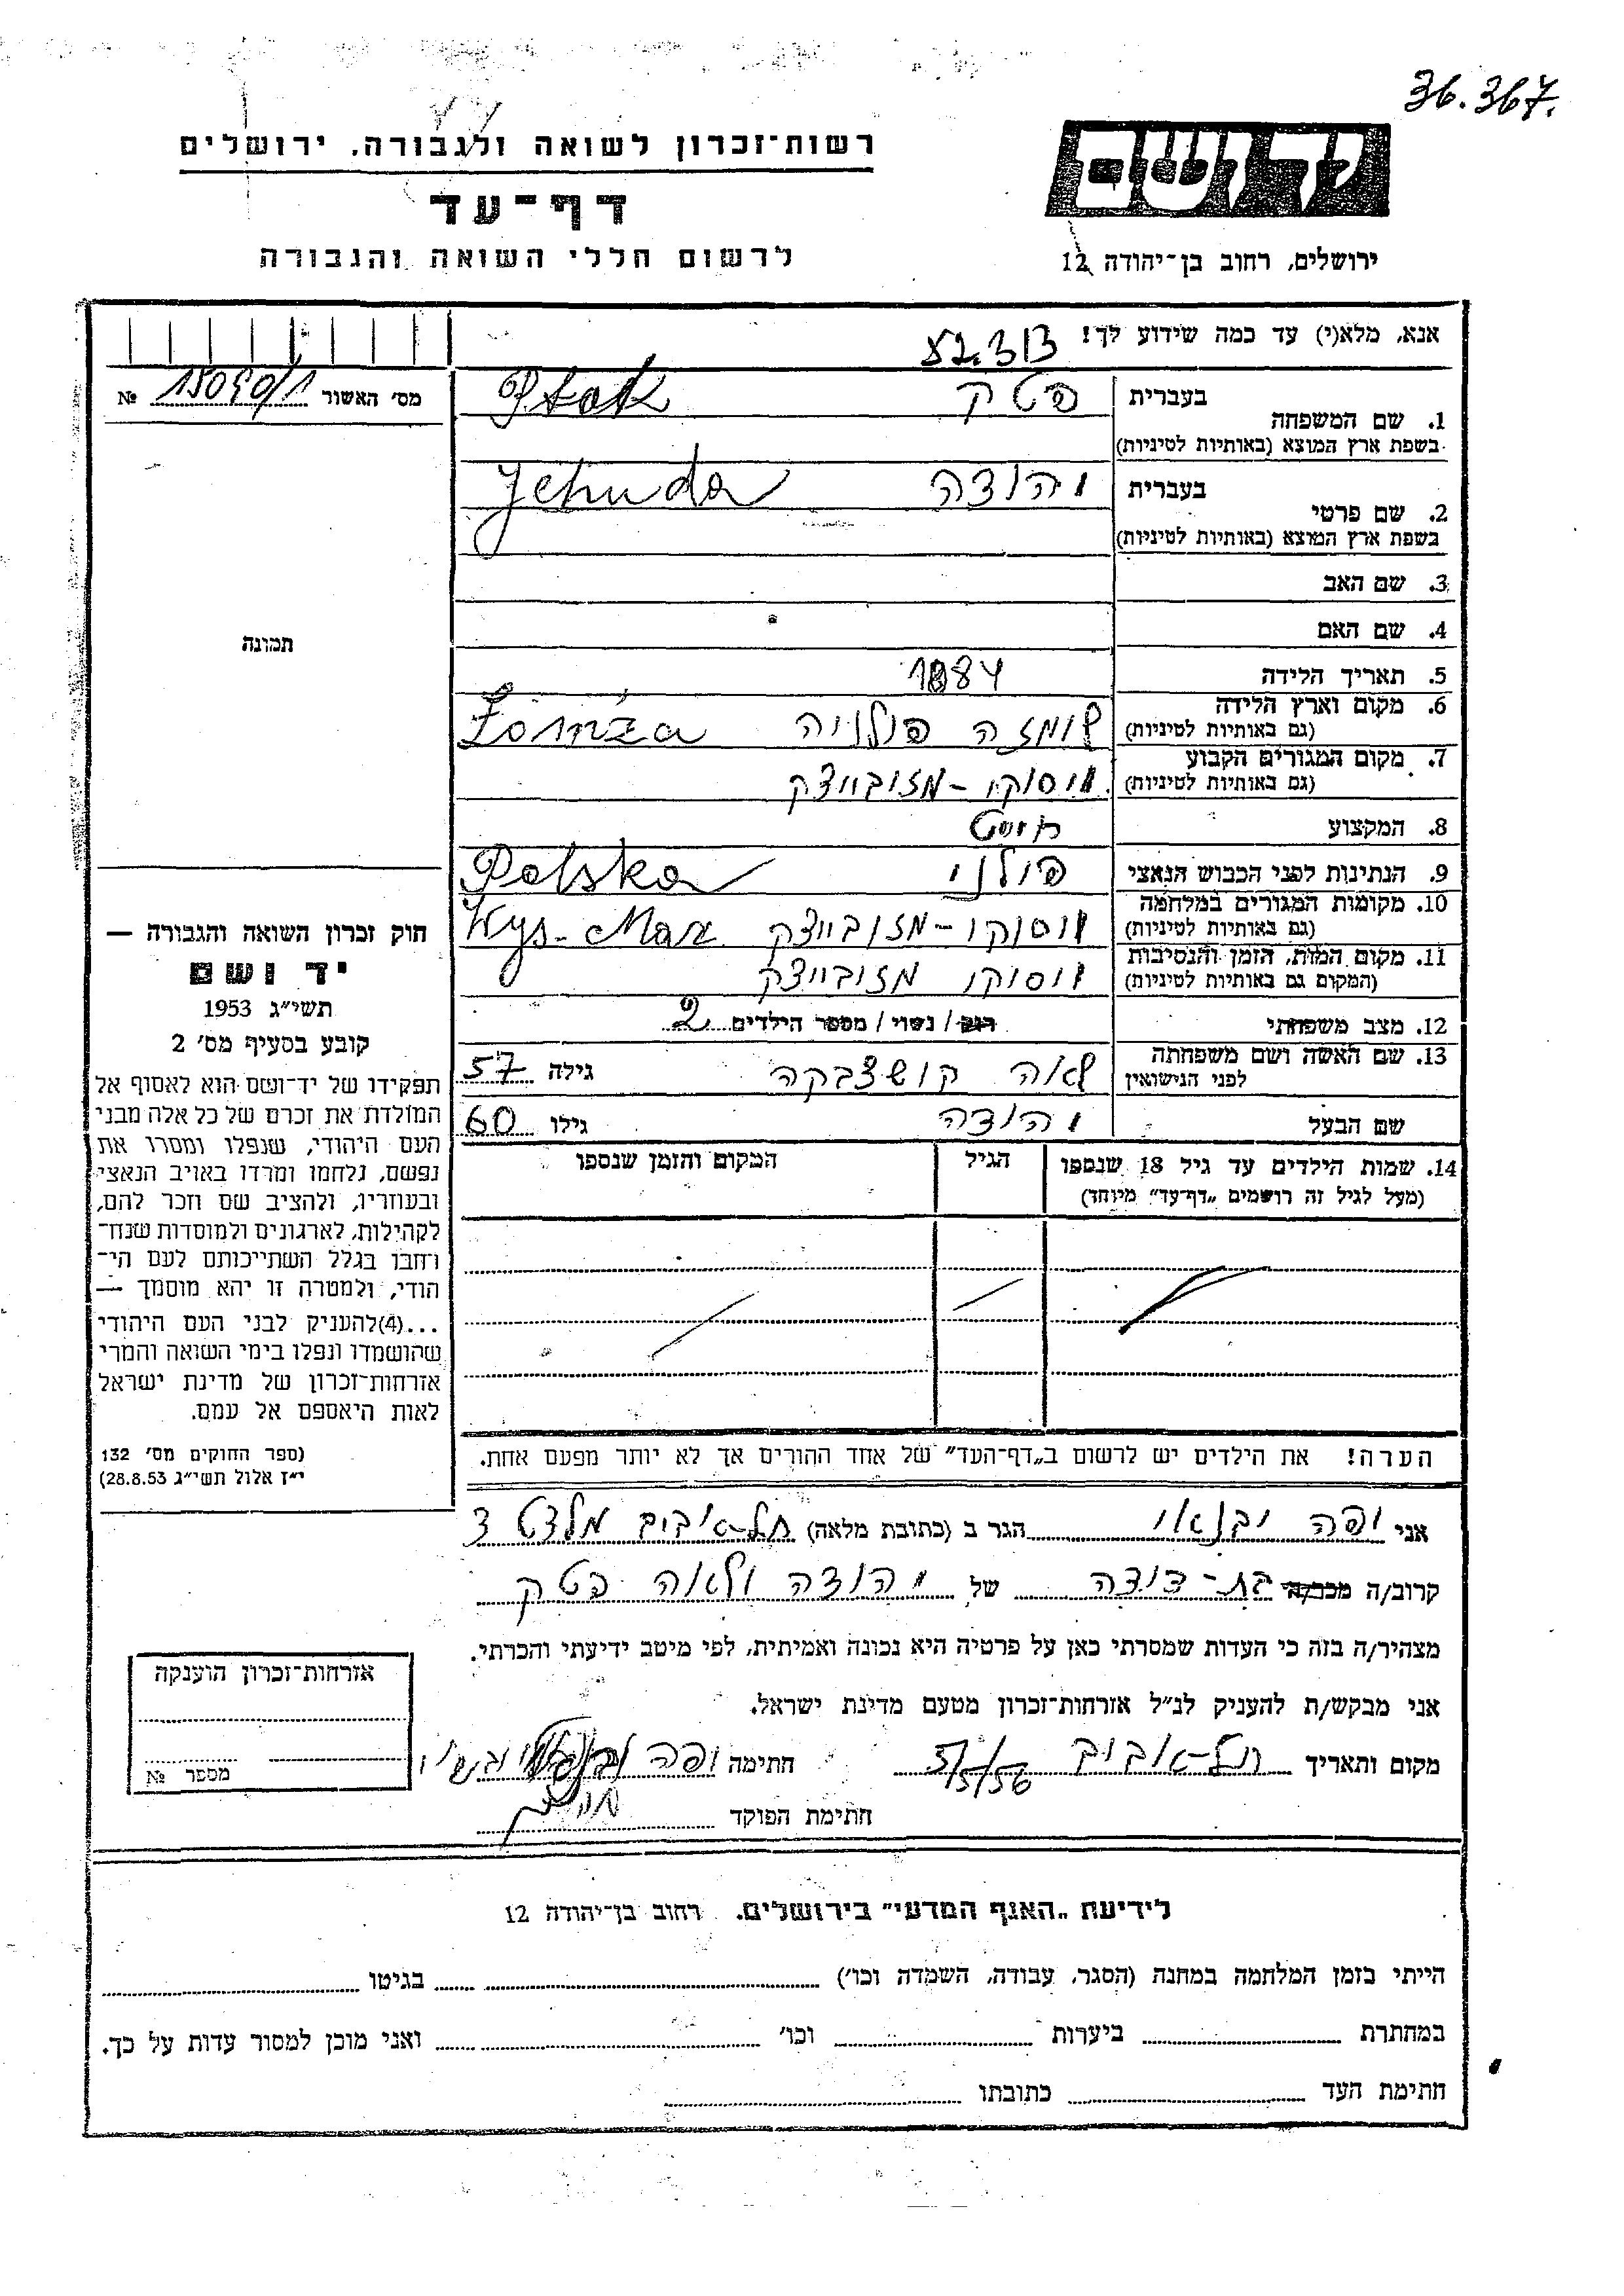 36.367.
רשות־זכרון לשואה ולגבורה, ירושלים
דף־עד
לרשום חללי השואה והגבורה
יד ושם
ירושלים, רחוב בן־יהודה 12
אנא, מלא(י) עד כמה שידוע לך!
מס' האשור № 15090/1
תמונה
בעברית פטק Ptak
1. שם המשפחה
בשפת ארץ המוצא (באותיות לטיניות)
בעברית יהודה Jehuda
2. שם פרטי
בשפת ארץ המוצא (באותיות לטיניות)
3. שם האב
4. שם האם
5. תאריך הלידה 1884
6. מקום וארץ הלידה לומזה פולניה Łomża
(גם באותיות לטיניות)
7. מקום המגורים הקבוע ויסוקו-מזובייצק
(גם באותיות לטיניות)
8. המקצוע חייט
9. הנתינות לפני הכבוש הנאצי פולני Polska
10. מקומות המגורים במלחמה ויסוקו-מזובייצק Wys-Maz
(גם באותיות לטיניות)
11. מקום המות, הזמן והנסיבות ויסוקו מזובייצק
(המקום גם באותיות לטיניות)
12. מצב משפחתי רוק/נשוי/מספר הילדים 2
13. שם האשה ושם משפחתה לאה קושצבקה גילה 57
לפני הנישואין
שם הבעל יהודה גילו 60
14. שמות הילדים עד גיל 18 שנספו הגיל המקום והזמן שנספו
(מעל לגיל זה רושמים „דף־עד" מיוחד)
הערה! את הילדים יש לרשום ב„דף־העד" של אחד ההורים אך לא יותר מפעם אחת.
חוק זכרון השואה והגבורה —
יד ושם
תשי"ג 1953
קובע בסעיף מס' 2
תפקידו של יד־ושם הוא לאסוף אל
המולדת את זכרם של כל אלה מבני
העם היהודי, שנפלו ומסרו את
נפשם, נלחמו ומרדו באויב הנאצי
ובעוזריו, ולהציב שם וזכר להם,
לקהילות, לארגונים ולמוסדות שנח־
רחבו בגלל השתייכותם לעם הי־
הודי, ולמטרה זו יהא מוסמך —
...(4)להעניק לבני העם היהודי
שהושמדו ונפלו בימי השואה והמרי
אזרחות־זכרון של מדינת ישראל
לאות היאספם אל עמם.
(ספר החוקים מס' 132
י"ז אלול תשי"ג 28.8.53)
אני יפה ובנאוי הגר ב (כתובת מלאה) תל-אביב
קרוב/ה מכר/ה בת-דודה של יהודה ולאה פטק
מצהיר/ה בזה כי העדות שמסרתי כאן על פרטיה היא נכונה ואמיתית, לפי מיטב ידיעתי והכרתי.
אני מבקש/ת להעניק לנ"ל אזרחות־זכרון מטעם מדינת ישראל.
מקום ותאריך תל-אביב 5/5/56 חתימה יפה
חתימת הפוקד
אזרחות־זכרון הוענקה
מספר №
לידיעת „האגף המדעי" בירושלים. רחוב בן־יהודה 12
הייתי בזמן המלחמה במחנה (הסגר, עבודה, השמדה וכו') בגיטו
במחתרת ביערות וכו' ואני מוכן למסור עדות על כך.
חתימת העד כתובתו